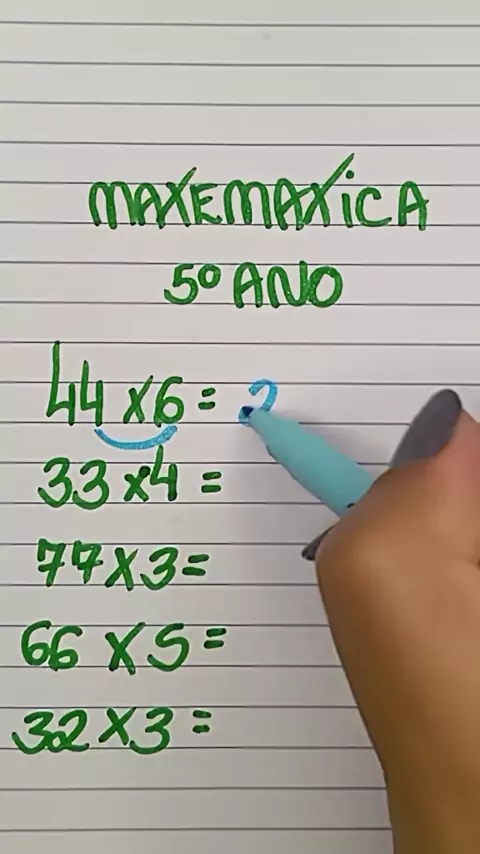 MATEMATICA
5º ANO
44 x 6 = 2
33 x 4 =
77 x 3 =
66 x 5 =
32 x 3 =